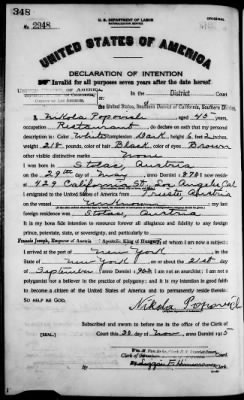 348
U. S. DEPARTMENT OF LABOR
NATURALIZATION SERVICE
ORIGINAL
No. 2348
UNITED STATES OF AMERICA
DECLARATION OF INTENTION
Invalid for all purposes seven years after the date hereof
In the District Court
the United States, Southern District of California, Southern Division
I, Nikola Popovich, aged 45 years,
occupation Restaurant, do declare on oath that my personal
description is: Color White, complexion Dark, height 6 feet 2 inches,
weight 218 pounds, color of hair Black, color of eyes Brown
other visible distinctive marks None
I was born in Stolac, Austria
on the 29th day of May, anno Domini 1870; I now reside
at 429 California St. Los Angeles, Cal.
I emigrated to the United States of America from Trieste, Austria
on the vessel Unknown; my last
foreign residence was Stolac, Austria
It is my bona fide intention to renounce forever all allegiance and fidelity to any foreign
prince, potentate, state, or sovereignty, and particularly to
Francis Joseph, Emperor of Austria Apostolic King of Hungary, of whom I am now a subject;
I arrived at the port of New York, in the
State of New York, on or about the 21st day
of September, anno Domini; I am not an anarchist; I am not a
polygamist nor a believer in the practice of polygamy; and it is my intention in good faith
to become a citizen of the United States of America and to permanently reside therein:
SO HELP ME GOD.
Nikola Popovich
Subscribed and sworn to before me in the office of the Clerk of
[SEAL.] said Court this day of Nov., anno Domini 1915
Clerk of
By, Clerk.